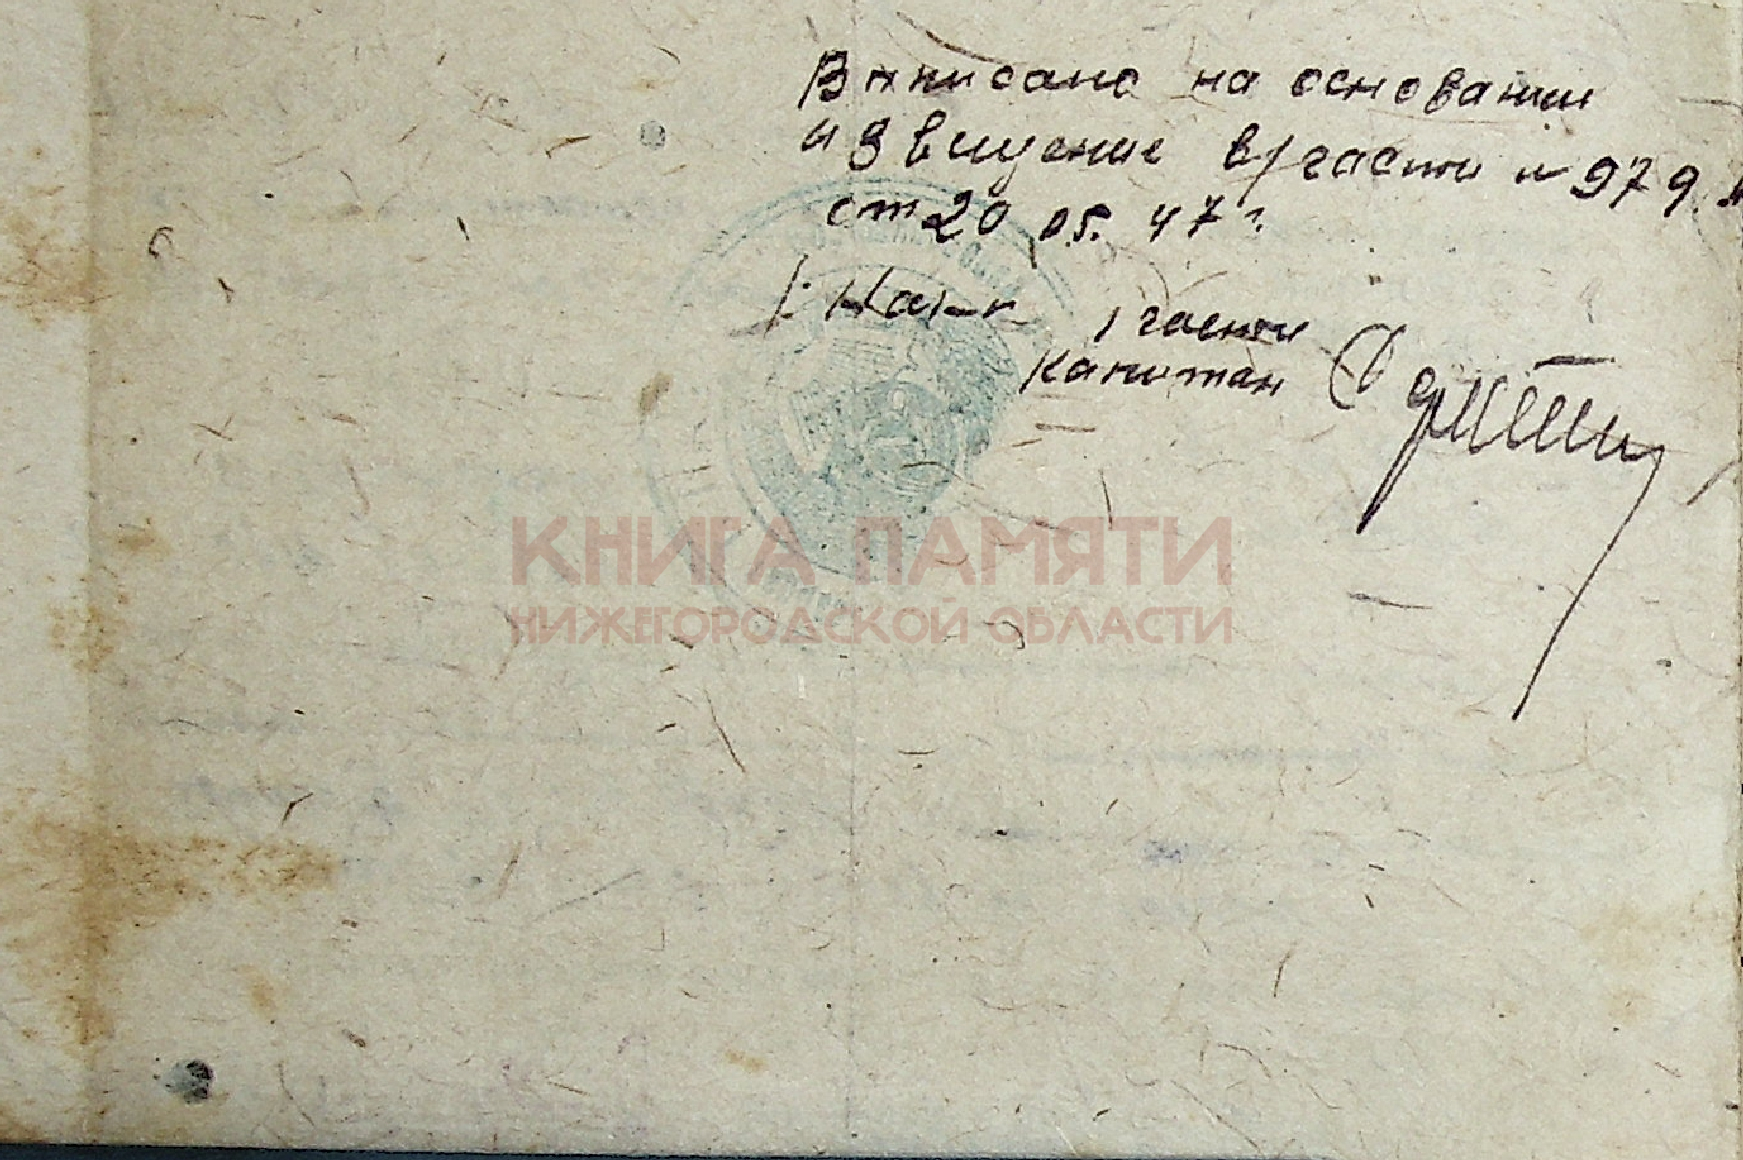 Виписано на основании
извищение в/части № 979
от 20.05.47 г.
1 части
капитан
КНИГА ПАМЯТИ
НИЖЕГОРОДСКОЙ ОБЛАСТИ